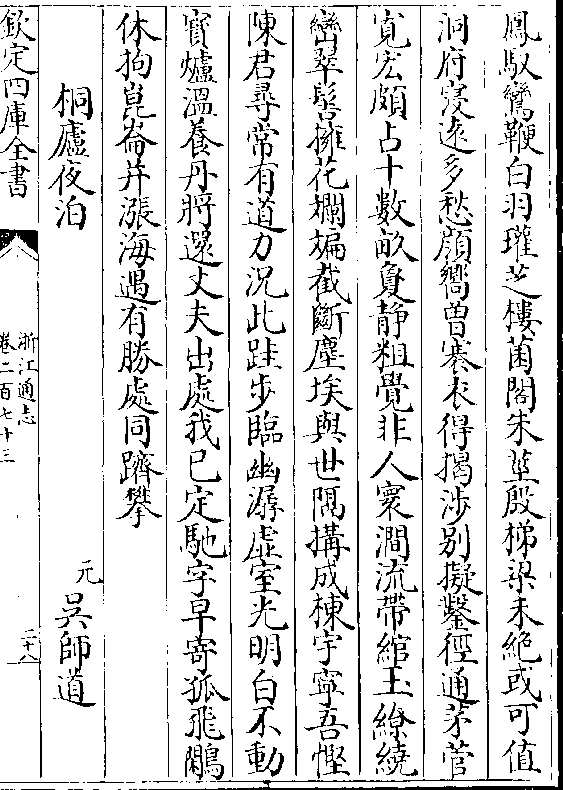 鳳馭鸞鞭白羽㩴芝樓菌閣朱莖殷梯梁未絶或可值
洞府寖逺多愁顔嚮曽褰衣得揭涉别擬鑿徑通茅菅
寛宏頗占十數畝敻靜粗覺非人寰澗流帶綰玉繚繞
巒翠髻擁花斕斒截斷塵埃與世隔搆成棟宇寧吾慳
陳君尋常有道力況此跬步臨幽潺虛室光明白不動
寳爐溫養丹將還丈夫出處我已定馳字早寄孤飛鷴
休拘崑崙并漲海遇有勝處同躋攀
桐廬夜泊
元 吳師道
欽定四庫全書
浙江通志
卷二百七十三
二十八